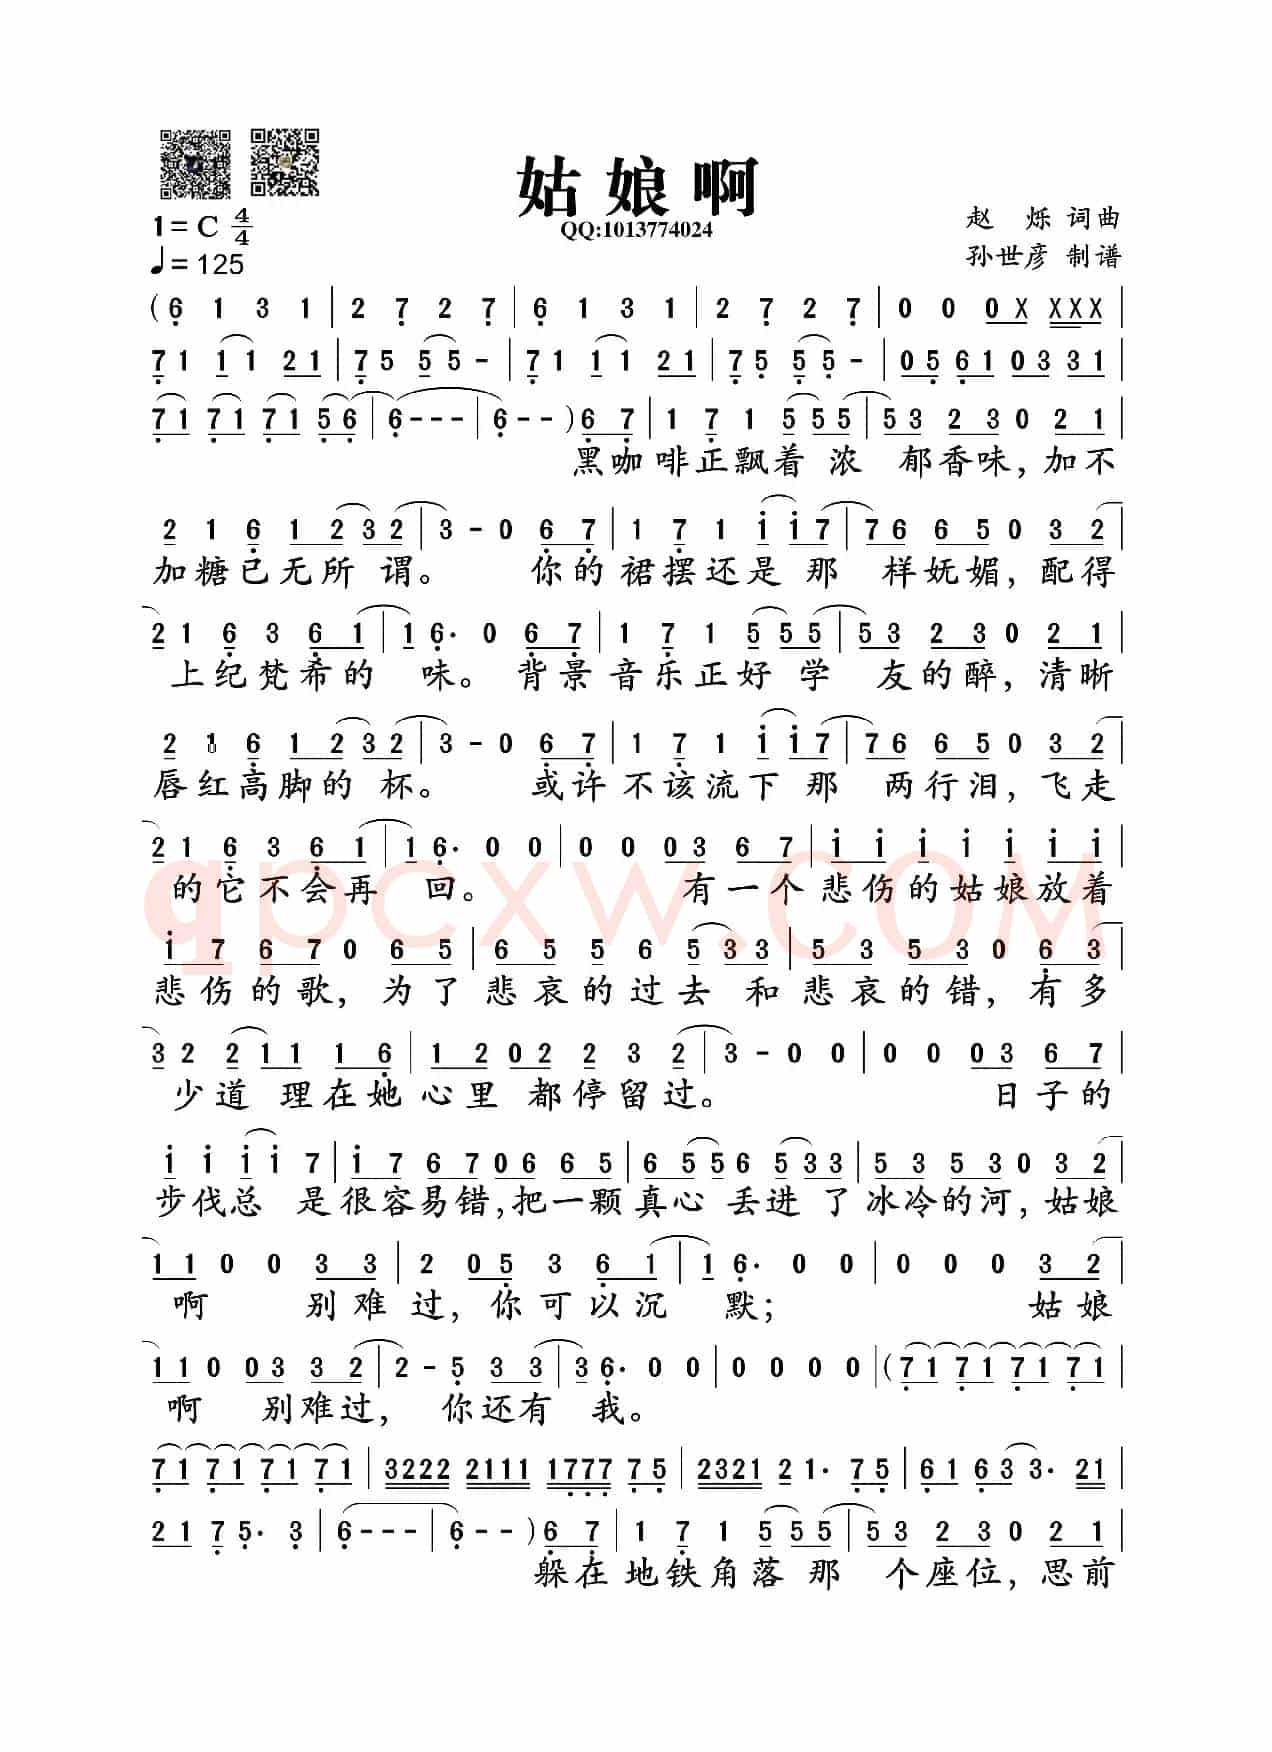 姑娘啊
QQ:1013774024
1=C 4/4
♩=125
赵 烁 词曲
孙世彦 制谱
(6 1 3 1 | 2 7 2 7 | 6 1 3 1 | 2 7 2 7 | 0 0 0 X XXX |
7 1 1 1 2 1 | 7 5 5 5 - | 7 1 1 1 2 1 | 7 5 5 5 - | 0 5 6 1 0 3 3 1 |
7 1 7 1 7 1 5 6 | 6 - - - | 6 - - ) 6 7 | 1 7 1 5 5 5 | 5 3 2 3 0 2 1 |
黑咖啡正飘着 浓 郁香味,加不
2 1 6 1 2 3 2 | 3 - 0 6 7 | 1 7 1 1 1 7 | 7 6 6 5 0 3 2 |
加糖已无所 谓。 你的裙摆还是 那 样妩媚,配得
2 1 6 3 6 1 | 1 6· 0 6 7 | 1 7 1 5 5 5 | 5 3 2 3 0 2 1 |
上纪梵希的 味。 背景音乐正好 学 友的醉,清晰
2 1 6 1 2 3 2 | 3 - 0 6 7 | 1 7 1 1 1 7 | 7 6 6 5 0 3 2 |
唇红高脚的 杯。 或许不该流下 那 两行泪,飞走
2 1 6 3 6 1 | 1 6· 0 0 | 0 0 0 3 6 7 | 1 1 1 1 1 1 |
的它不会再 回。 有一个悲伤的姑娘放着
1 7 6 7 0 6 5 | 6 5 5 6 5 3 3 | 5 3 5 3 0 6 3 |
悲伤的歌,为了悲哀的过去 和悲哀的错,有多
3 2 2 1 1 1 6 | 1 2 0 2 2 3 2 | 3 - 0 0 | 0 0 0 3 6 7 |
少道 理在她心里 都停留过。 日子的
1 1 1 1 7 | 1 7 6 7 0 6 6 5 | 6 5 5 6 5 3 3 | 5 3 5 3 0 3 2 |
步伐总 是很容易错,把一颗真心 丢进 了冰冷的河,姑娘
1 1 0 0 3 3 | 2 0 5 3 6 1 | 1 6· 0 0 | 0 0 0 3 2 |
啊 别难过,你可以沉 默; 姑娘
1 1 0 0 3 3 2 | 2 - 5 3 3 | 3 6· 0 0 | 0 0 0 0 | (7 1 7 1 7 1 7 1 |
啊 别难过, 你还有 我。
7 1 7 1 7 1 7 1 | 3222 2111 1777 7 5 | 2321 2 1· 7 5 | 6 1 6 3 3· 2 1 |
2 1 7 5· 3 | 6 - - - | 6 - - ) 6 7 | 1 7 1 5 5 5 | 5 3 2 3 0 2 1 |
躲在地铁角落 那 个座位,思前
qpcxw.COM